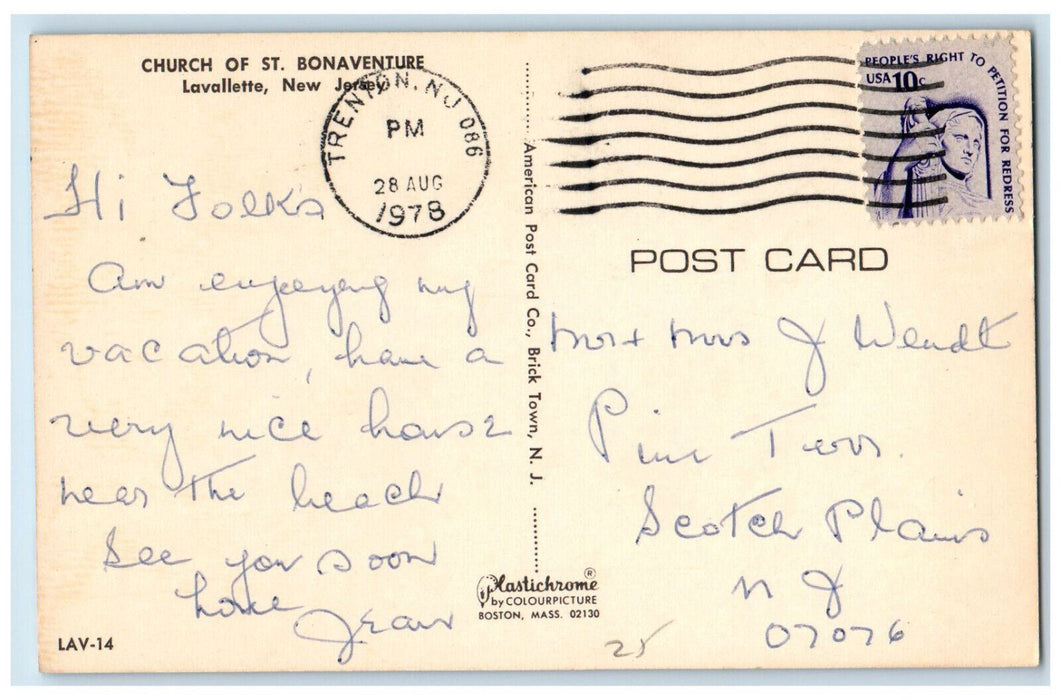 CHURCH OF ST. BONAVENTURE
Lavallette, New Jersey
TRENTON, NJ 086
PM
28 AUG
1978
PEOPLE'S RIGHT TO PETITION FOR REDRESS
USA 10c
Hi Folks
Am enjoying my
vacation, have a
very nice house
near the beach
See you soon
Love
Jean
LAV-14
American Post Card Co., Brick Town, N. J.
Plastichrome ®
by COLOURPICTURE
BOSTON, MASS. 02130
POST CARD
Mr + Mrs J Wendt
Pine Terr.
Scotch Plains
N J
07076
25